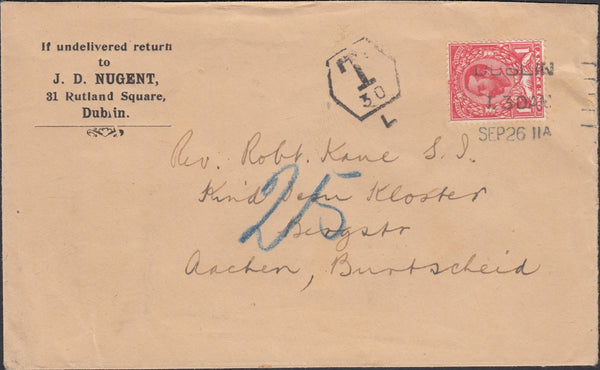 If undelivered return
to
J. D. NUGENT,
31 Rutland Square,
Dublin.
T
30
L
DUBLIN
1.30AM
SEP 26 11A
Rev. Robt. Kane S. J.
Kind Jesu Kloster
Bergstr
Aachen, Burtscheid
25